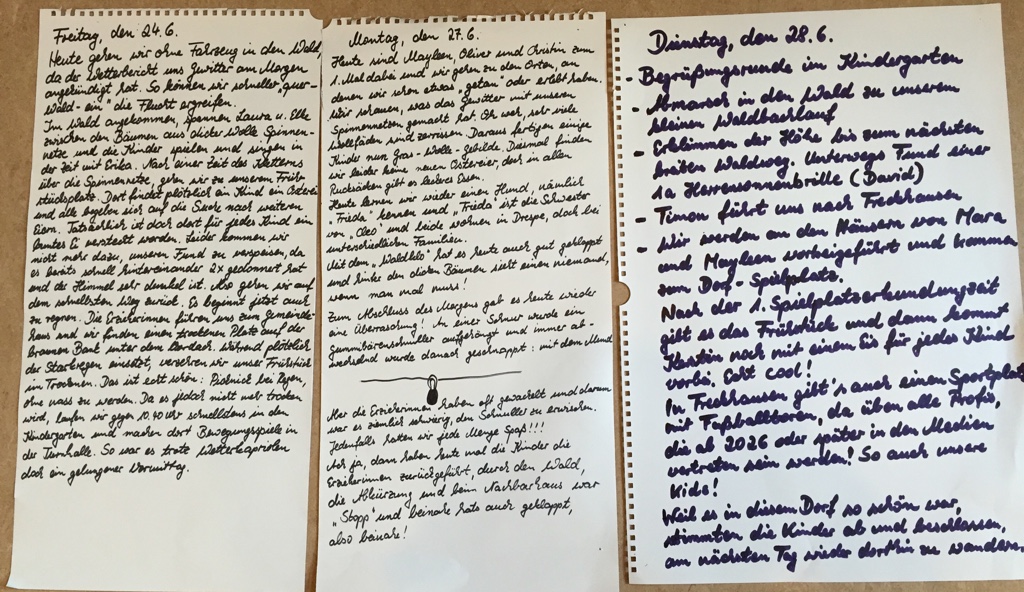 Freitag, den 24.6.
Heute gehen wir ohne Fahrzeug in den Wald,
da der Wetterbericht uns Gewitter am Morgen
angekündigt hat. So können wir schneller „quer-
Wald-ein" die Flucht ergreifen.
Im Wald angekommen, spannen Laura u. Elke
zwischen den Bäumen aus dicker Wolle Spinnen-
netze und die Kinder spielen und singen in
der Zeit mit Erika. Nach einer Zeit des Kletterns
über die Spinnennetze, gehen wir zu unserem Früh-
stücksplatz. Dort findet plötzlich ein Kind ein Osterei
und alle begeben sich auf die Suche nach weiteren
Eiern. Tatsächlich ist dort für jedes Kind ein
buntes Ei versteckt worden. Leider kommen wir
nicht mehr dazu, unseren Fund zu verspeisen, da
es bereits schnell hintereinander 2x gedonnert hat
und der Himmel sehr dunkel ist. Also gehen wir auf
dem schnellsten Weg zurück. Es beginnt jetzt auch
zu regnen. Die Erzieherinnen führen uns zum Gemeinde-
haus und wir finden einen trockenen Platz auf der
braunen Bank unter dem Vordach. Während plötzlich
der Starkregen einsetzt, verzehren wir unser Frühstück
im Trockenen. Das ist echt schön: Picknick bei Regen,
ohne nass zu werden. Da es jedoch nicht mehr trocken
wird, laufen wir gegen 10.40 Uhr schnellstens in den
Kindergarten und machen dort Bewegungsspiele in
der Turnhalle. So war es trotz Wetterkapriolen
doch ein gelungener Vormittag.
Montag, den 27.6.
Heute sind Mayleen, Oliver und Christin zum
1. Mal dabei und wir gehen zu den Orten, an
denen wir schon etwas „getan" oder erlebt haben.
Wir schauen, was das Gewitter mit unseren
Spinnennetzen gemacht hat. Oh weh, sehr viele
Wollfäden sind zerrissen. Daraus fertigen einige
Kinder nun Gras-Wolle-Gebilde. Diesmal finden
wir leider keine neuen Ostereier, doch in allen
Rucksäcken gibt es leckeres Essen.
Heute lernen wir wieder einen Hund, nämlich
„Frieda" kennen und „Frieda" ist die Schwester
von „Cleo" und beide wohnen in Drespe, doch bei
unterschiedlichen Familien.
Mit dem „Waldklo" hat es heute auch gut geklappt
und hinter den dicken Bäumen sieht einen niemand,
wenn man mal muss!
Zum Abschluss des Morgens gab es heute wieder
eine Überraschung! An einer Schnur wurde ein
Gummibärenschnuller aufgehängt und immer ab-
wechselnd wurde danach geschnappt: mit dem Mund
Aber die Erzieherinnen haben oft gewackelt und darum
war es ziemlich schwierig, den Schnuller zu erwischen.
Jedenfalls hatten wir jede Menge Spaß!!!
Ach ja, dann haben heute mal die Kinder die
Erzieherinnen zurückgeführt, durch den Wald,
die Abkürzung und beim Nachbarhaus war
„Stopp" und beinahe hats auch geklappt,
also beinahe!
Dienstag, den 28.6.
- Begrüßungsrunde im Kindergarten
- Abmarsch in den Wald zu unserem
kleinen Waldbachlauf
- Erklimmen der Höhe bis zum nächsten
breiten Waldweg. Unterwegs Fund einer
1a Herrensonnenbrille (David)
- Timon führt uns nach Freckhausen
- Wir werden an den Häusern von Mara
und Mayleen vorbeigeführt und kommen
zum Dorf-Spielplatz.
Nach der 1. Spielplatzerkundungszeit
gibt es das Frühstück und dann kommt
Kerstin noch mit einem Eis für jedes Kind
vorbei. Echt cool!
In Freckhausen gibt's auch einen Sportplatz
mit Fußballtoren, da üben alle Profis,
die ab 2026 oder später in den Medien
vertreten sein werden! So auch unsere
Kids!
Weil es in diesem Dorf so schön war,
stimmten die Kinder ab und beschlossen,
am nächsten Tag wieder dorthin zu wandern